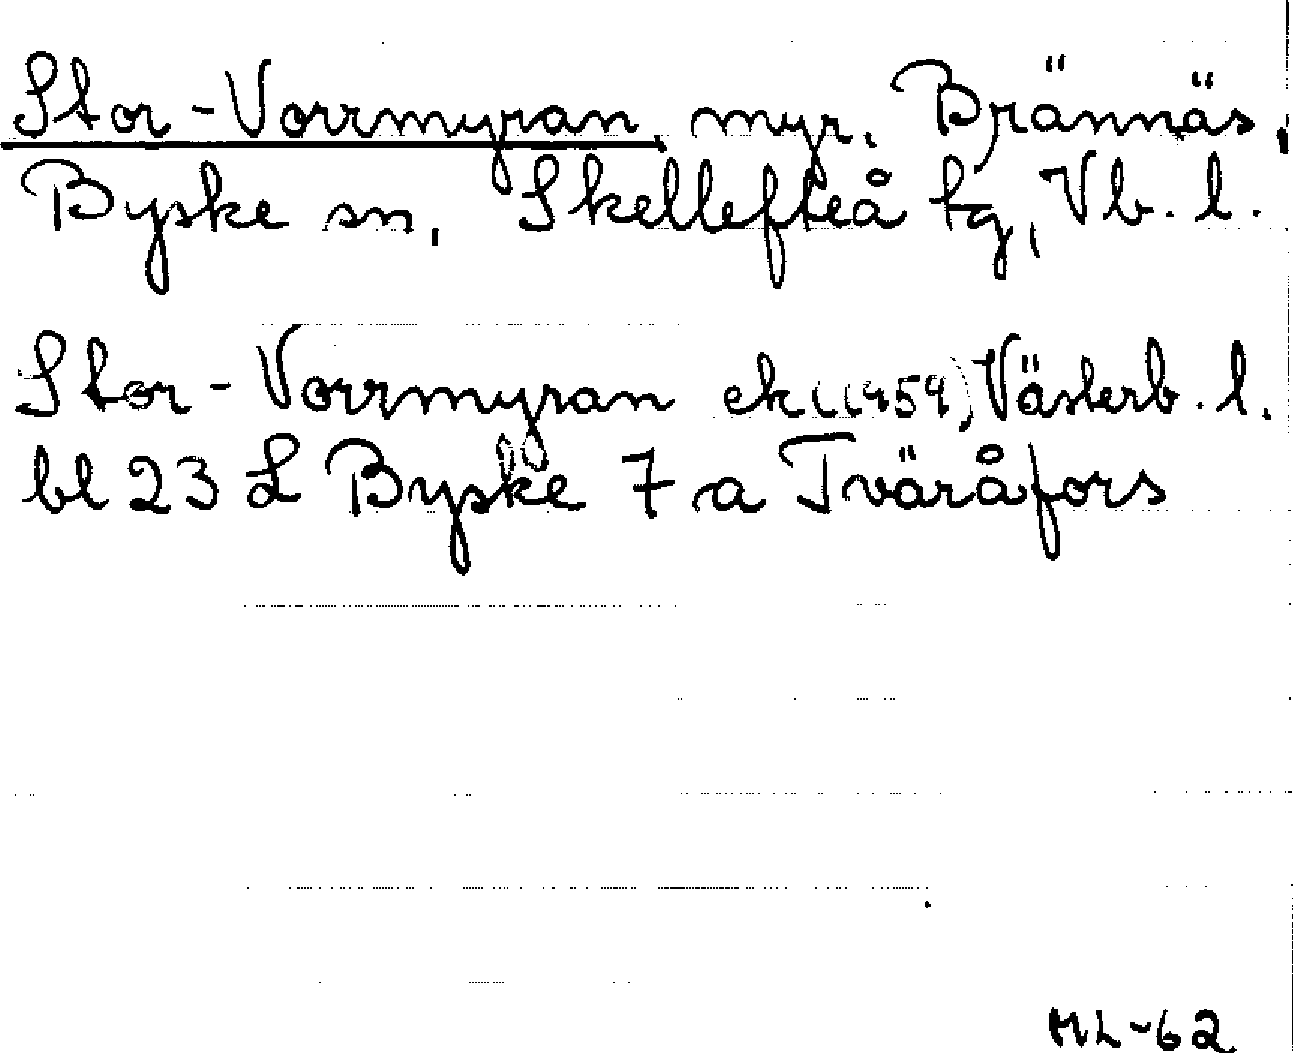 Stor-Vorrmyran, myr, Brännäs,
Byske sn, Skellefteå tg, Vb. l.
Stor-Vorrmyran ek (1959), Västerb. l.
bl 23 L Byske 7 a Tväråfors
ML-62